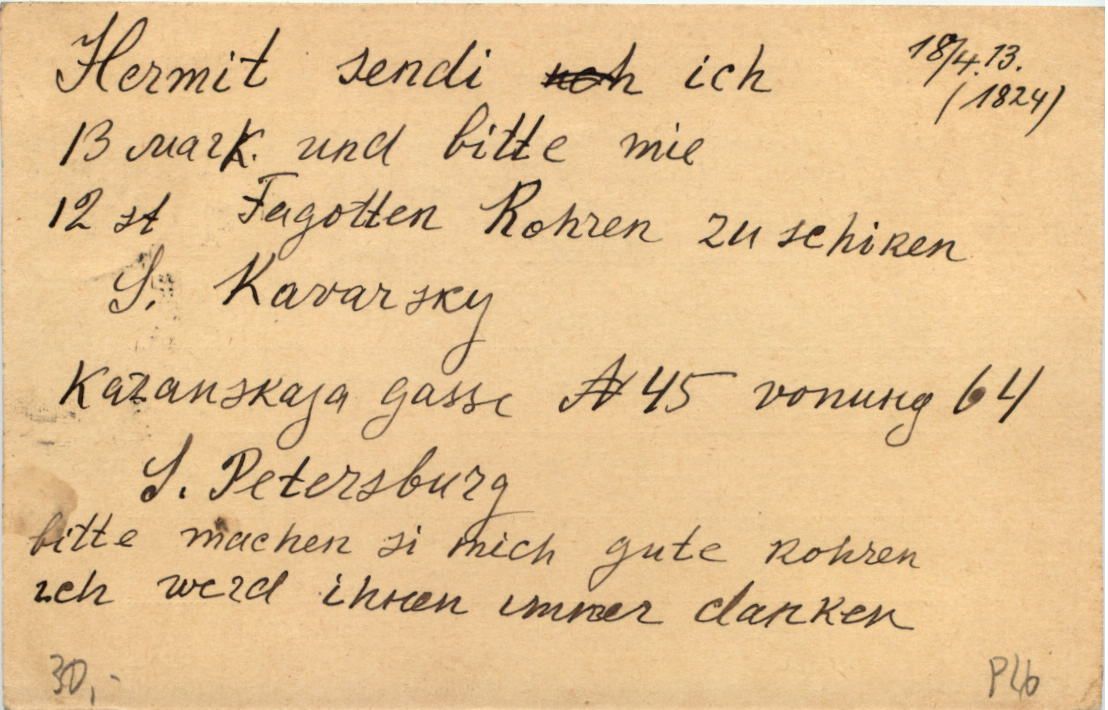 Hermit sendi ich
18/4.13.
(1824)
13 mark. und bitte mie
12 st Fagotten Rohren zu schiken
S. Kavarsky
Kazanskaja gasse N 45 vonung 64
S. Petersburg
bitte machen si mich gute Rohren
ich werd ihnen immer danken
30,-
P46